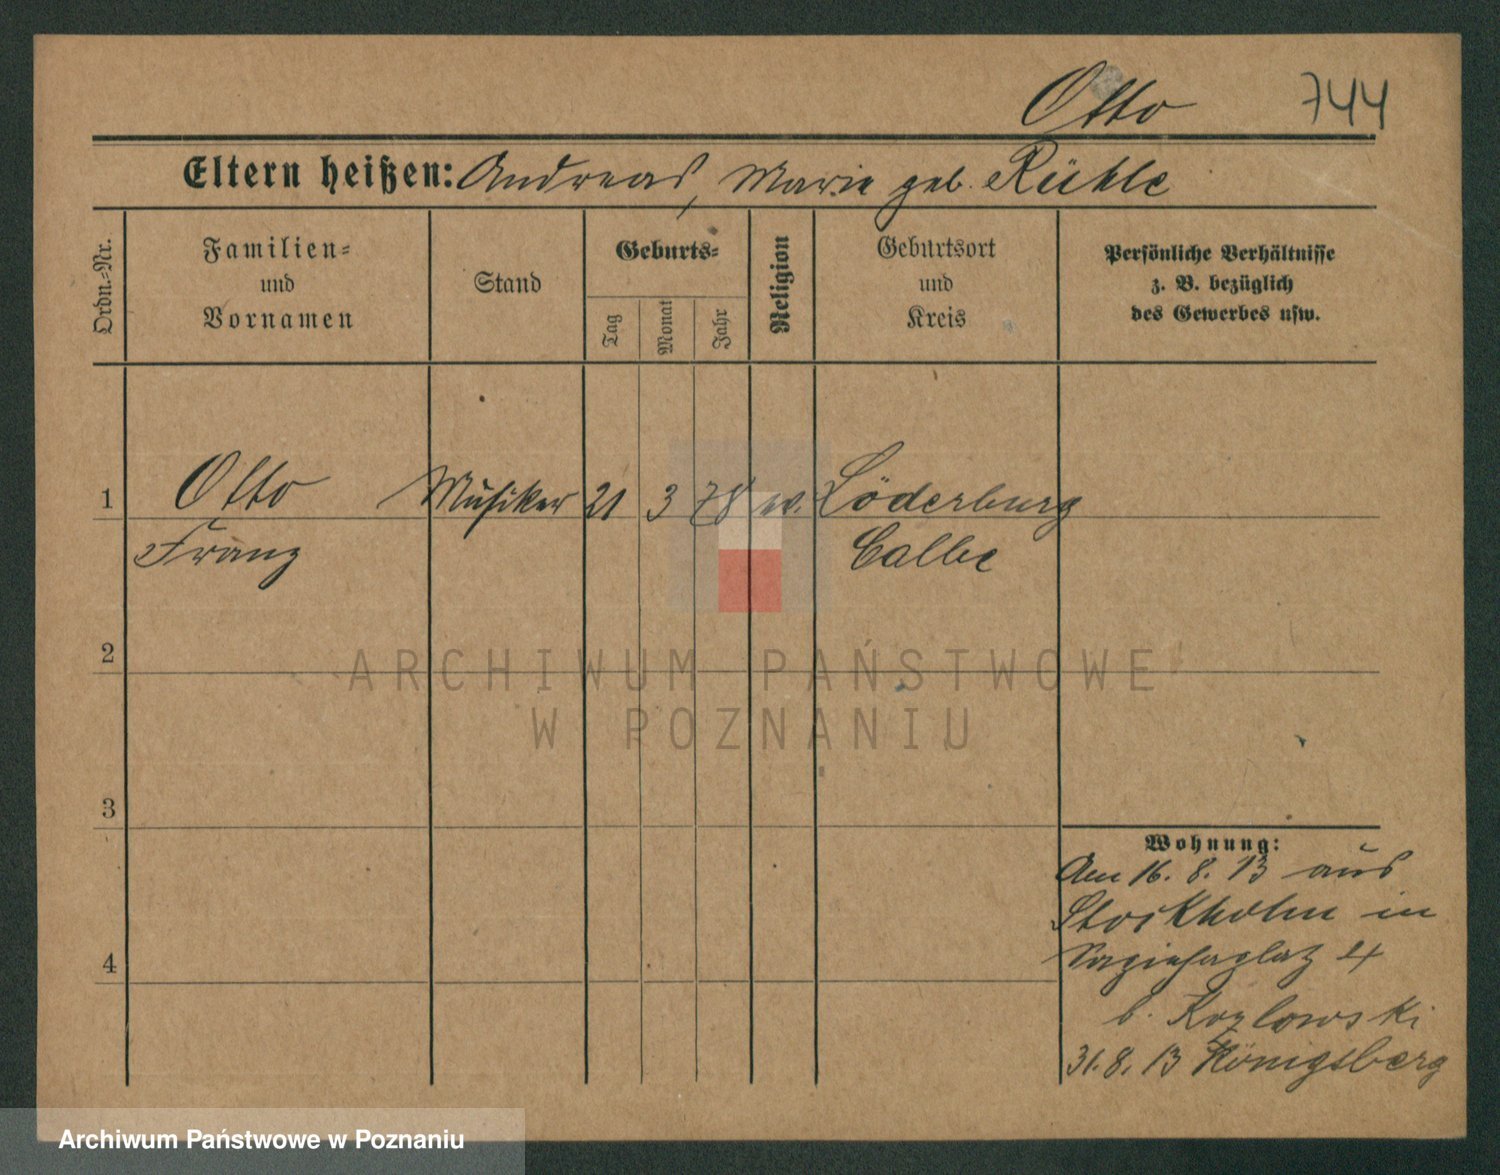 Otto 744
Eltern heißen: Andreas, Marie geb. Rühle
Ordn.=Nr.
Familien=
und
Vornamen
Stand
Geburts=
Tag
Monat
Jahr
Religion
Geburtsort
und
Kreis
Persönliche Verhältnisse
z. B. bezüglich
des Gewerbes usw.
1 Otto Musiker 21 3 78 ev. Löderburg
Franz Calbe
2
ARCHIWUM PAŃSTWOWE
W POZNANIU
3
Wohnung:
Am 16. 8. 13 aus
Stockholm in
Sapiehaplatz 4
4
b. Kozlowski
31.8.13 Königsberg
Archiwum Państwowe w Poznaniu